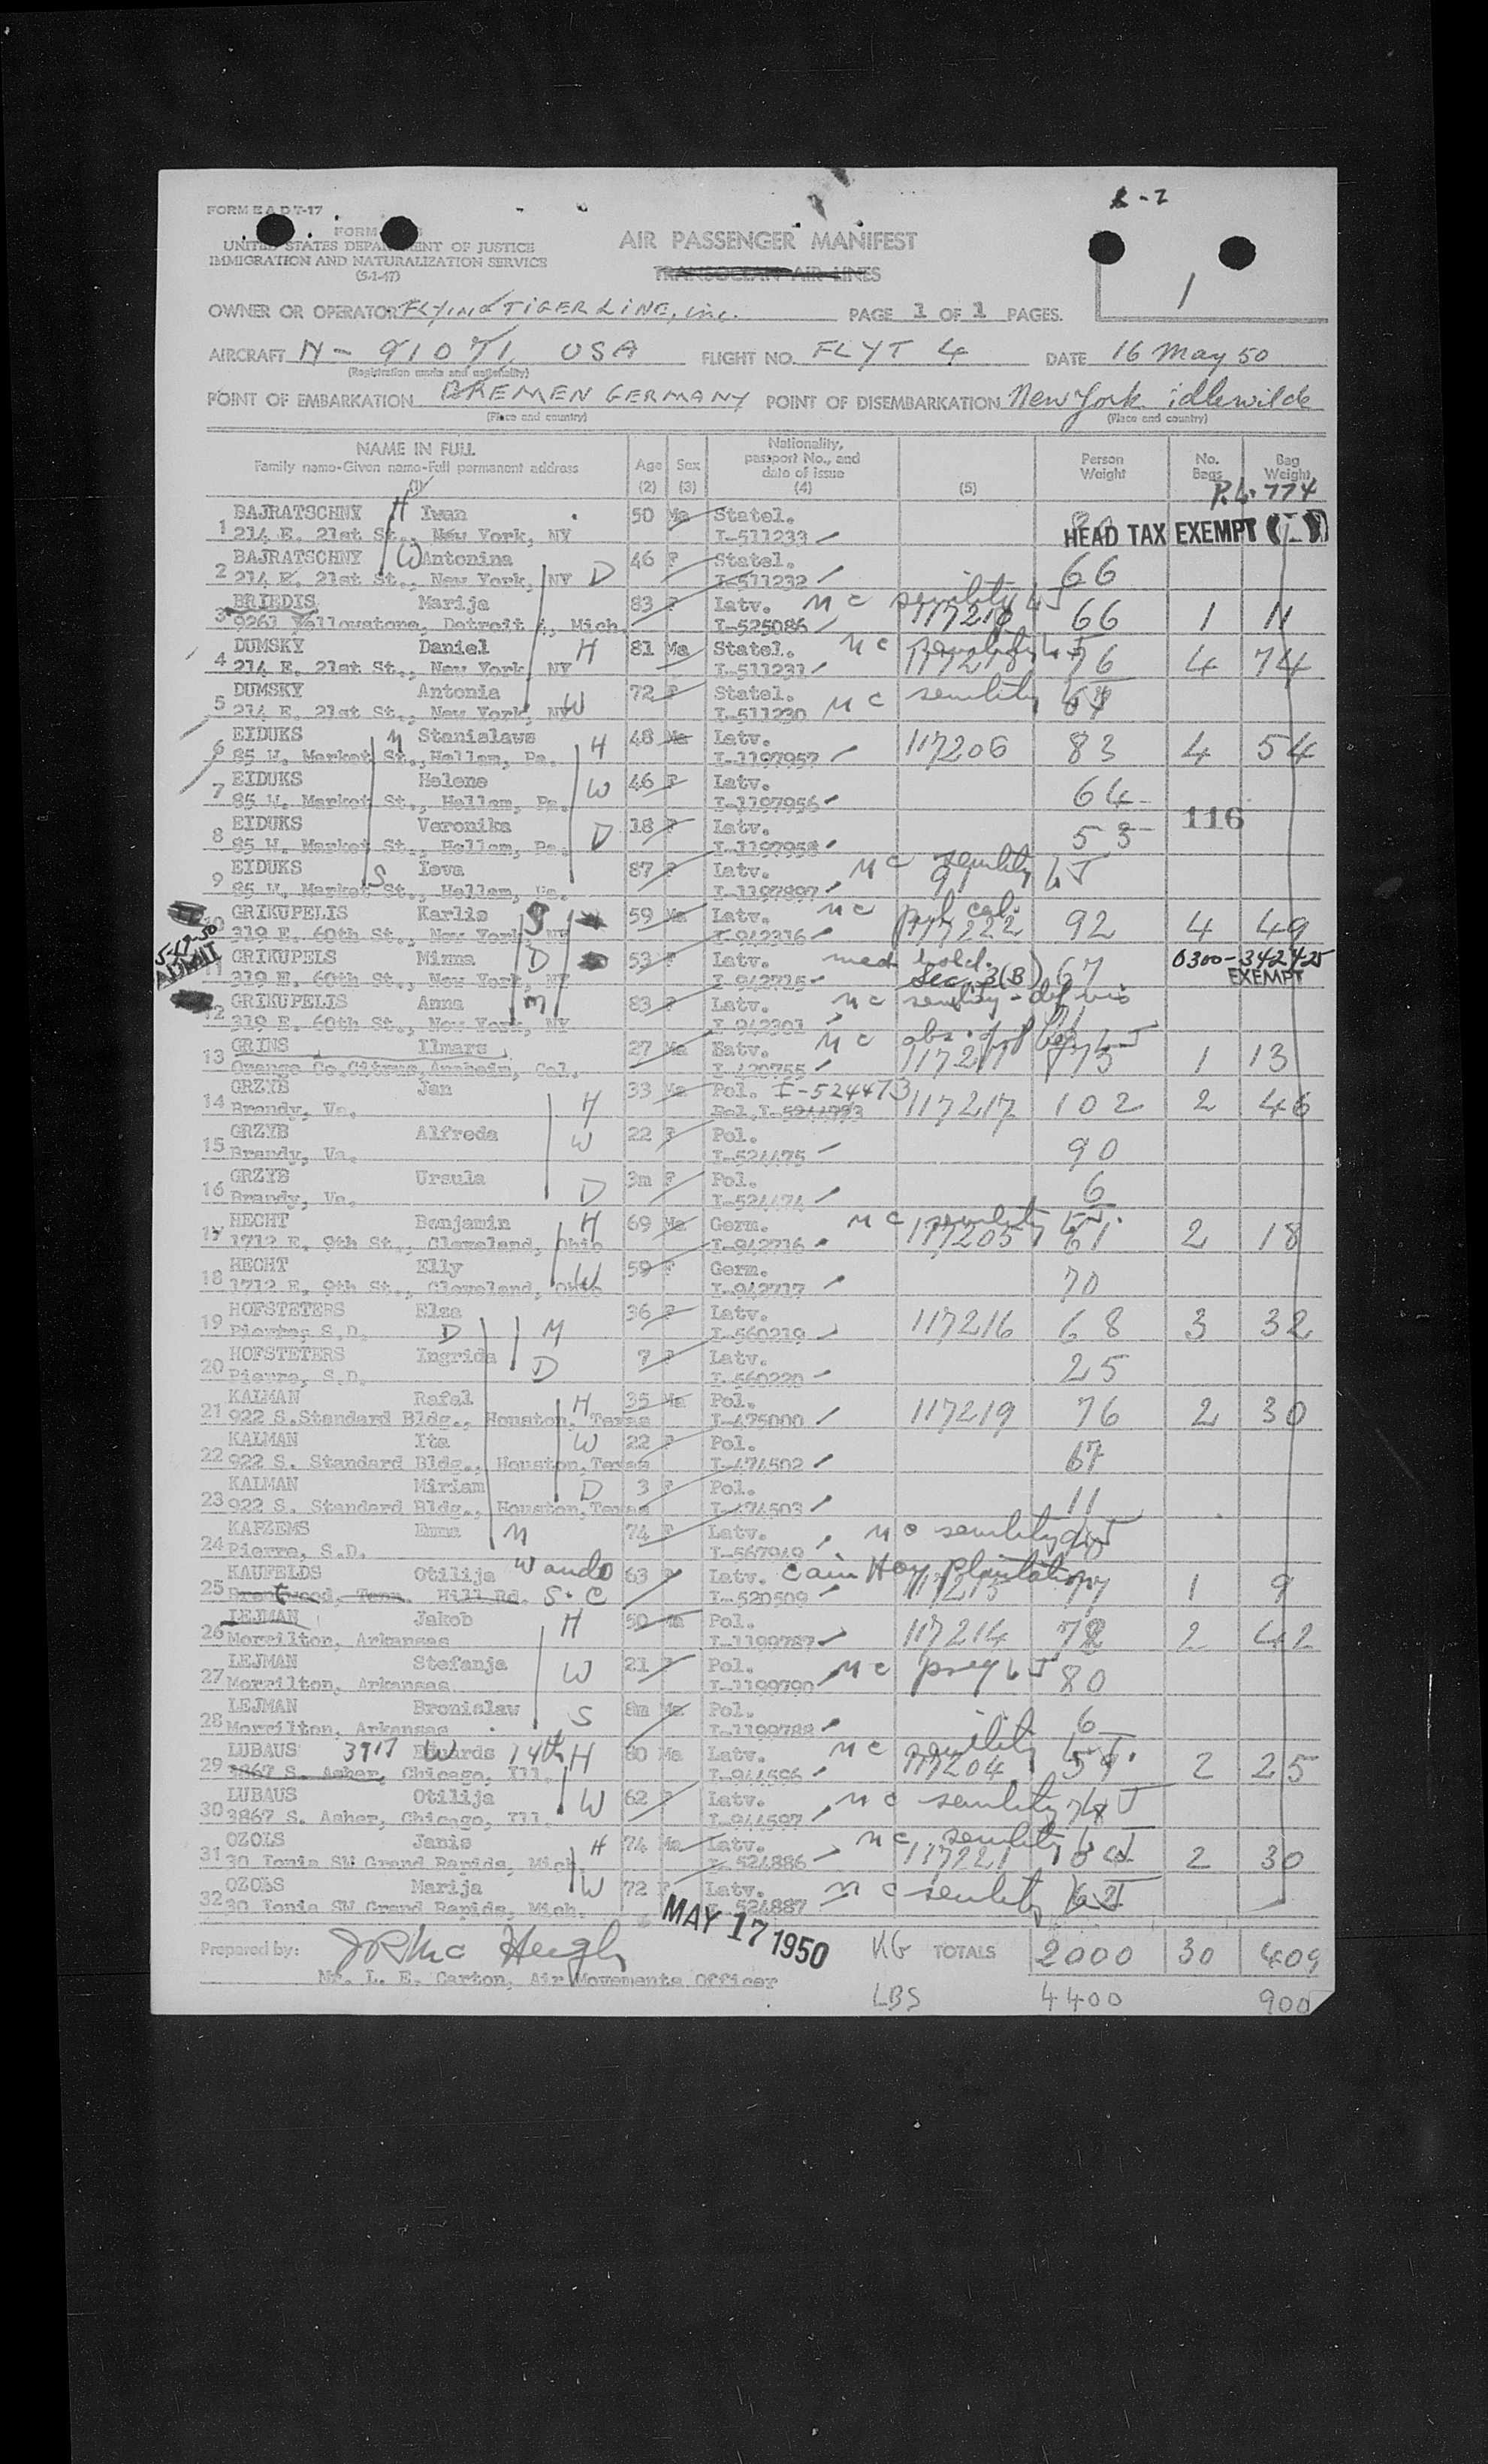 R-2
FORM E A D T-17
FORM
UNITED STATES DEPARTMENT OF JUSTICE
IMMIGRATION AND NATURALIZATION SERVICE
(5-1-47)
AIR PASSENGER MANIFEST
TRANSOCEAN AIR LINES
1
OWNER OR OPERATOR FLYING TIGER LINE, inc. PAGE 1 OF 1 PAGES.
AIRCRAFT N-91071 USA FLIGHT NO. FLYT 4 DATE 16 May 50
(Registration marks and nationality)
POINT OF EMBARKATION BREMEN GERMANY POINT OF DISEMBARKATION New York idlewilde
(Place and country) (Place and country)
NAME IN FULL Age Sex Nationality, passport No., and date of issue Person Weight No. Bags Bag Weight
Family name-Given name-Full permanent address
(1) (2) (3) (4) (5)
P.L. 774
BAJRATSCHNY H Iwan 50 Ma Statel.
1 214 E. 21st St., New York, NY I-511233 HEAD TAX EXEMPT
BAJRATSCHNY W Antonina 46 F Statel. 66
2 214 E. 21st St., New York, NY D I-511232
BRIEDIS Marija 83 F Latv. M C senility 66 1 11
3 9261 Yellowstone, Detroit 4, Mich. I-525086
DUMSKY Daniel H 81 Ma Statel. M C senility 76 4 74
4 214 E. 21st St., New York, NY I-511231
DUMSKY Antonia W 72 F Statel. M C senility
5 214 E. 21st St., New York, NY I-511230
EIDUKS Stanislaws H 48 Ma Latv. 117206 83 4 54
6 85 W. Market St., Hellam, Pa. I-1197957
EIDUKS Helene W 46 F Latv. 64
7 85 W. Market St., Hellam, Pa. I-1197956
EIDUKS Veronika D 18 F Latv. 53 116
8 85 W. Market St., Hellam, Pa. I-1197958
EIDUKS Ieva 87 F Latv. M C senility
9 85 W. Market St., Hellam, Pa. S I-1197897
GRIKUPELIS Karlis S 59 Ma Latv. M C 117222 92 4 49
10 319 E. 60th St., New York, NY I-942316
5-19-50 ADMIT
GRIKUPELS Minna D 53 F Latv. med hold. Sec. 3(B) 67 0300-342425 EXEMPT
11 319 E. 60th St., New York, NY I-942715
GRIKUPELIS Anna M 83 F Latv. M C senility - def vis
12 319 E. 60th St., New York, NY I-942301
GRINS Ilmars 27 Ma Latv. M C 73 1 13
13 Orange Co. Citrus, Anaheim, Cal. I-420755
GRZYB Jan H 33 Ma Pol. I-524473 117217 102 2 46
14 Brandy, Va. Pol.
GRZYB Alfreda W 22 F Pol. 90
15 Brandy, Va. I-524475
GRZYB Ursula D 3m F Pol. 6
16 Brandy, Va. I-524474
HECHT Benjamin H 69 Ma Germ. M C senility 117205 61 2 18
17 1712 E. 9th St., Cleveland, Ohio I-942716
HECHT Elly W 59 F Germ. 70
18 1712 E. 9th St., Cleveland, Ohio I-942717
HOFSTETERS Elza M 36 F Latv. 117216 68 3 32
19 Pierre, S.D. D I-560219
HOFSTETERS Ingrida D 7 F Latv. 25
20 Pierre, S.D. I-560220
KALMAN Rafal H 35 Ma Pol. 117219 76 2 30
21 922 S. Standard Bldg., Houston, Texas I-475000
KALMAN Ita W 22 F Pol. 67
22 922 S. Standard Bldg., Houston, Texas I-474502
KALMAN Miriam D 3 F Pol. 11
23 922 S. Standard Bldg., Houston, Texas I-474503
KAPZEMS Emma M 74 F Latv. M C senility
24 Pierre, S.D. I-567949
KAUFELDS Otilija Wando 63 F Latv. Cain Hoy Plantation 77 1 9
25 Brentwood, Tenn. Hill Rd. S.C I-520509 117213
LEJMAN Jakob H 50 Ma Pol. 117214 72 2 42
26 Morrilton, Arkansas I-1199787
LEJMAN Stefanja W 21 F Pol. M C preg 80
27 Morrilton, Arkansas I-1199790
LEJMAN Bronislaw S 8m Ma Pol. 6
28 Morrilton, Arkansas I-1199788
LUBAUS 3917 W Eduards 14th H 80 Ma Latv. M C senility 117204 2 25
29 3867 S. Asher, Chicago, Ill. I-944596
LUBAUS Otilija W 62 F Latv. M C senility
30 3867 S. Asher, Chicago, Ill. I-944597
OZOLS Janis H 74 Ma Latv. M C senility 117221 2 30
31 30 Ionia SW Grand Rapids, Mich. I-524886
OZOLS Marija W 72 F Latv. M C senility
32 30 Ionia SW Grand Rapids, Mich. I-524887
MAY 17 1950
Prepared by: KG TOTALS 2000 30 409
Mr. L. E. Carton, Air Movements Officer
LBS 4400 900